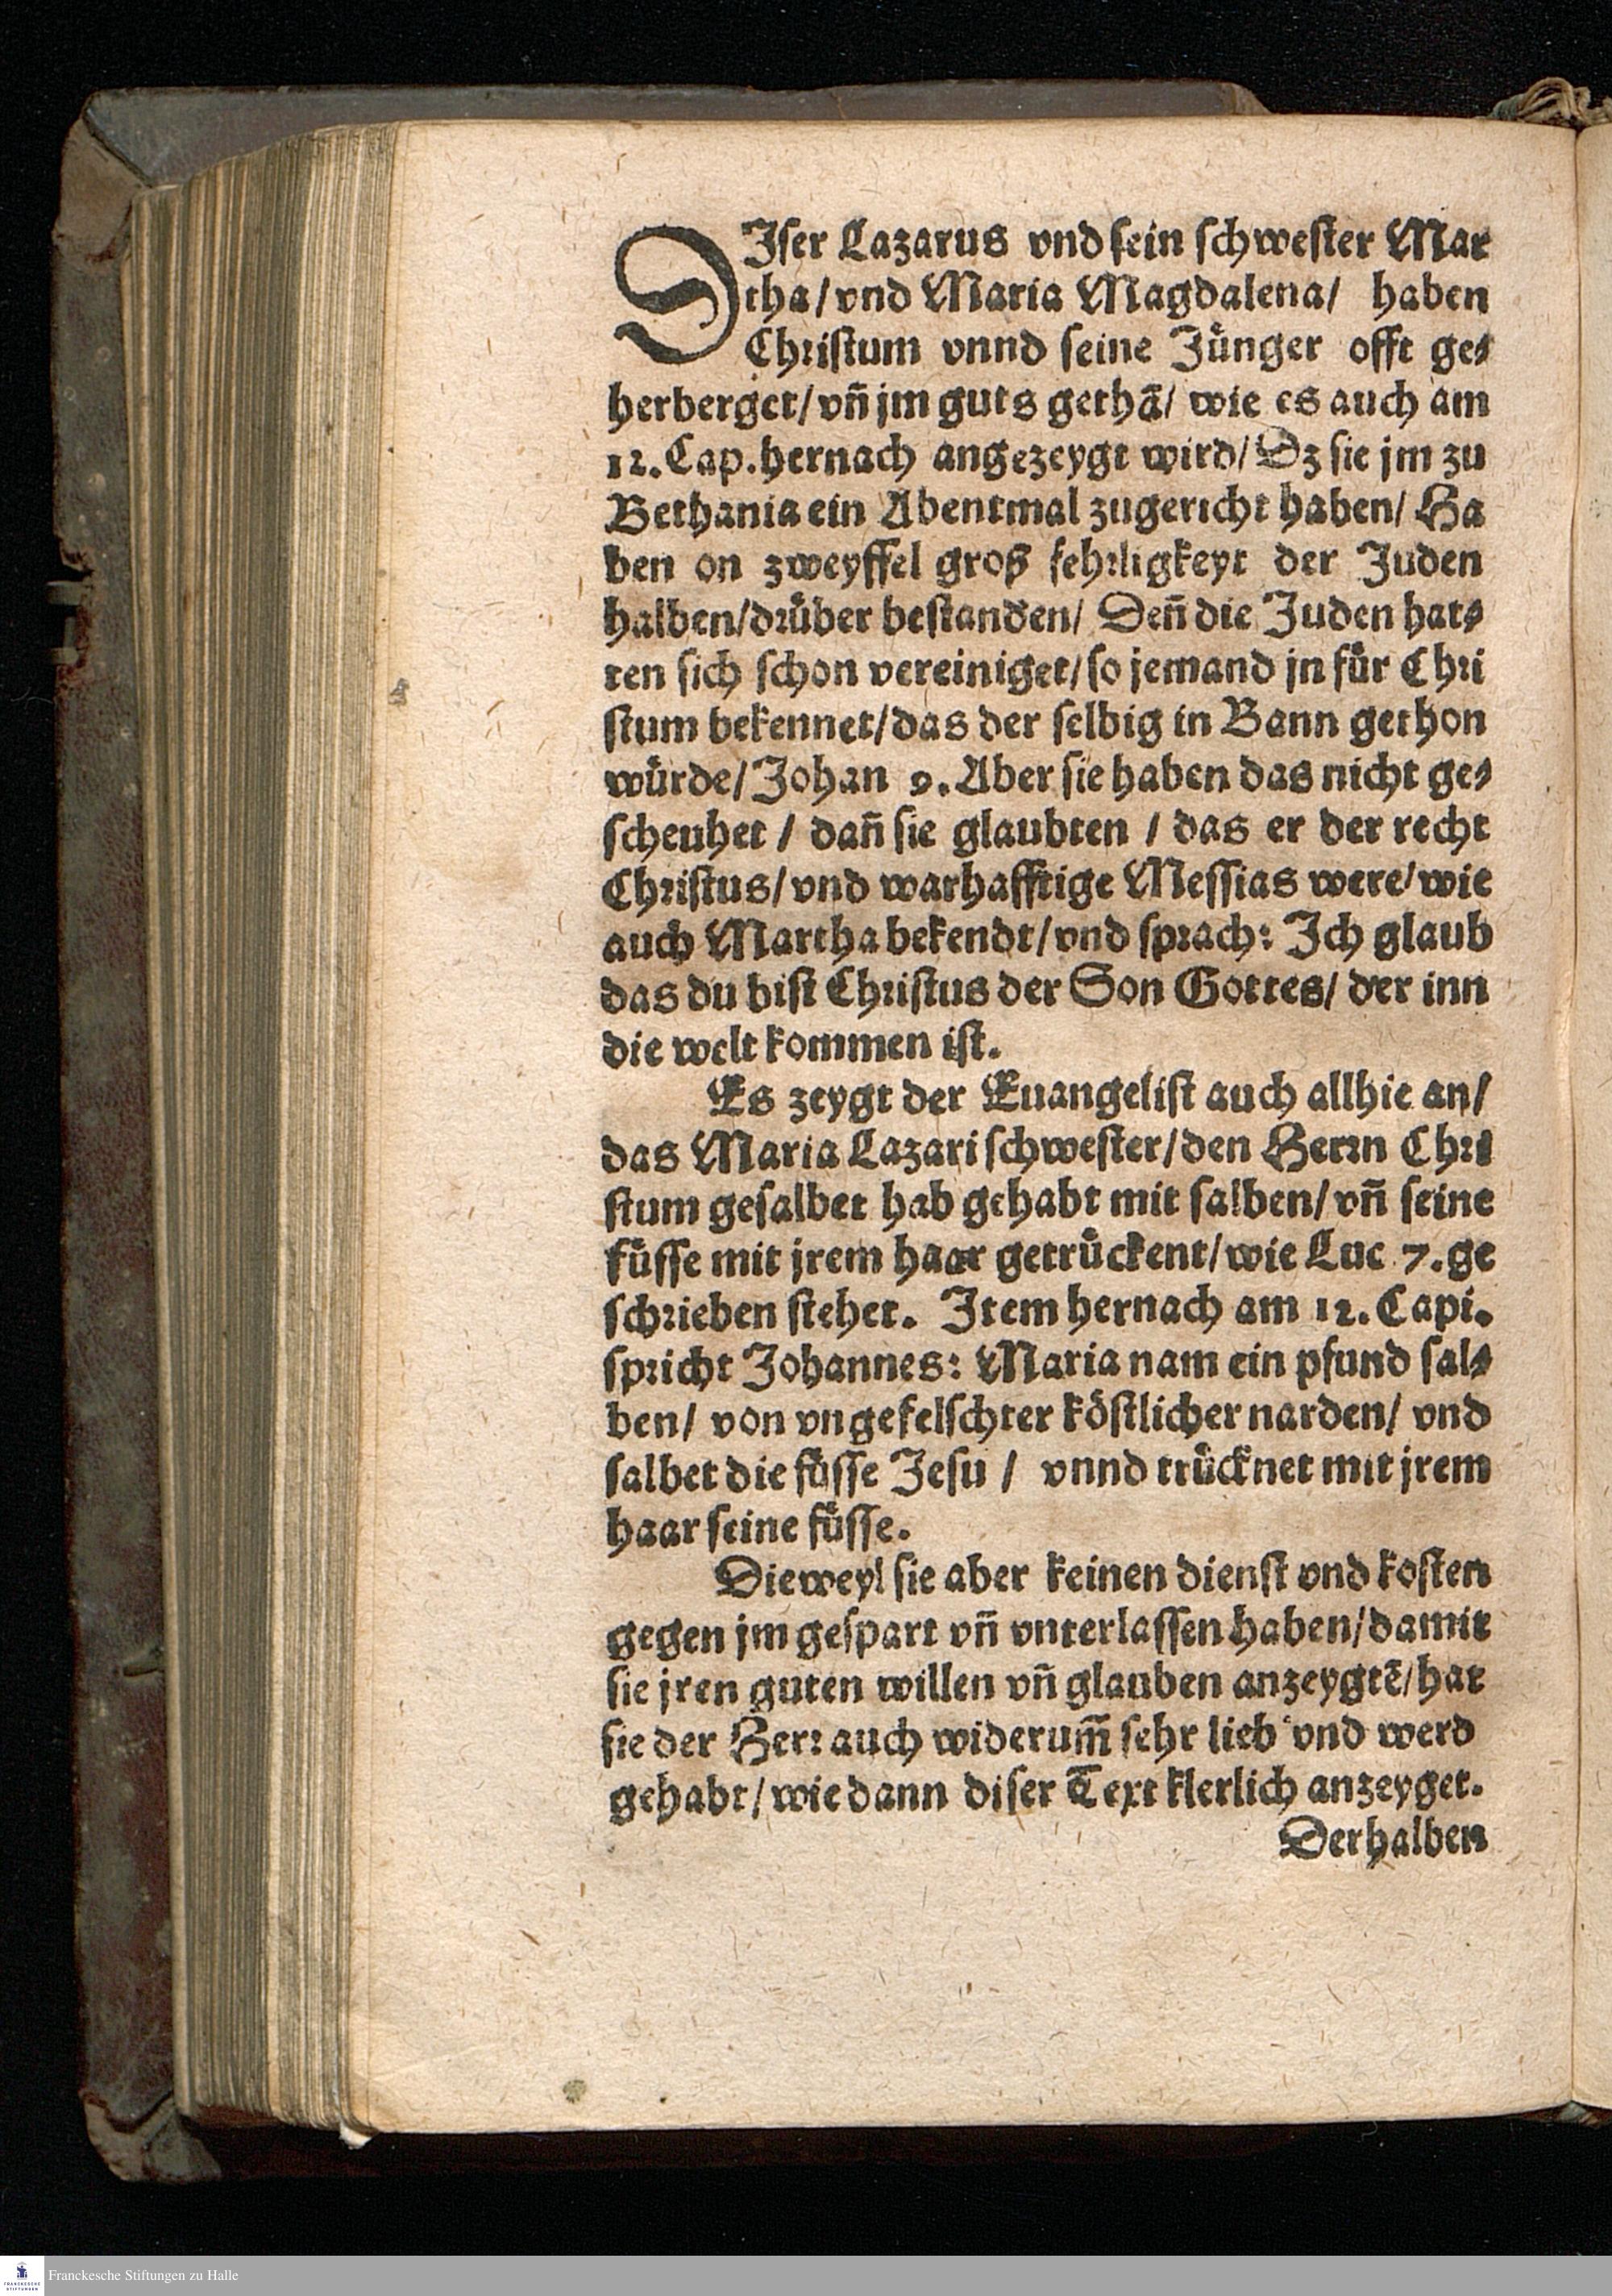 DIſer Lazarus vnd ſein ſchweſter Mar
tha/ vnd Maria Magdalena/ haben
Chriſtum vnnd ſeine Juͤnger offt ge⸗
herberget/ vn̄ jm guts gethā/ wie es auch am
12. Cap. hernach angezeygt wird/ Dz ſie jm zu
Bethania ein Abentmal zugericht haben/ Ha
ben on zweyffel groß fehrligkeyt der Juden
halben/ druͤber beſtanden/ Den̄ die Juden hat⸗
ten ſich ſchon vereiniget/ ſo jemand jn fuͤr Chri
ſtum bekennet/ das der ſelbig in Bann gethon
wuͤrde/ Johan 9. Aber ſie haben das nicht ge⸗
ſcheuhet / dan̄ ſie glaubten / das er der recht
Chriſtus/ vnd warhafftige Meſſias were/ wie
auch Martha bekendt/ vnd ſprach: Ich glaub
das du biſt Chriſtus der Son Gottes/ der inn
die welt kommen iſt.
Es zeygt der Euangeliſt auch allhie an/
das Maria Lazari ſchweſter/ den Herrn Chri
ſtum geſalbet hab gehabt mit ſalben/ vn̄ ſeine
fuͤſſe mit jrem haar getruͤckent/ wie Luc 7. ge
ſchrieben ſtehet. Item hernach am 12. Capi.
ſpricht Johannes: Maria nam ein pfund ſal⸗
ben/ von vngefelſchter koͤſtlicher narden/ vnd
ſalbet die fuͤſſe Jeſu / vnnd truͤcknet mit jrem
haar ſeine fuͤſſe.
Dieweyl ſie aber keinen dienſt vnd koſten
gegen jm geſpart vn̄ vnterlaſſen haben/ damit
ſie jren guten willen vn̄ glauben anzeygtē/ hat
ſie der Herr auch widerum̄ ſehr lieb vnd werd
gehabt/ wie dann diſer Text klerlich anzeyget.
Derhalben
FRANCKESCHE STIFTUNGEN
Franckesche Stiftungen zu Halle